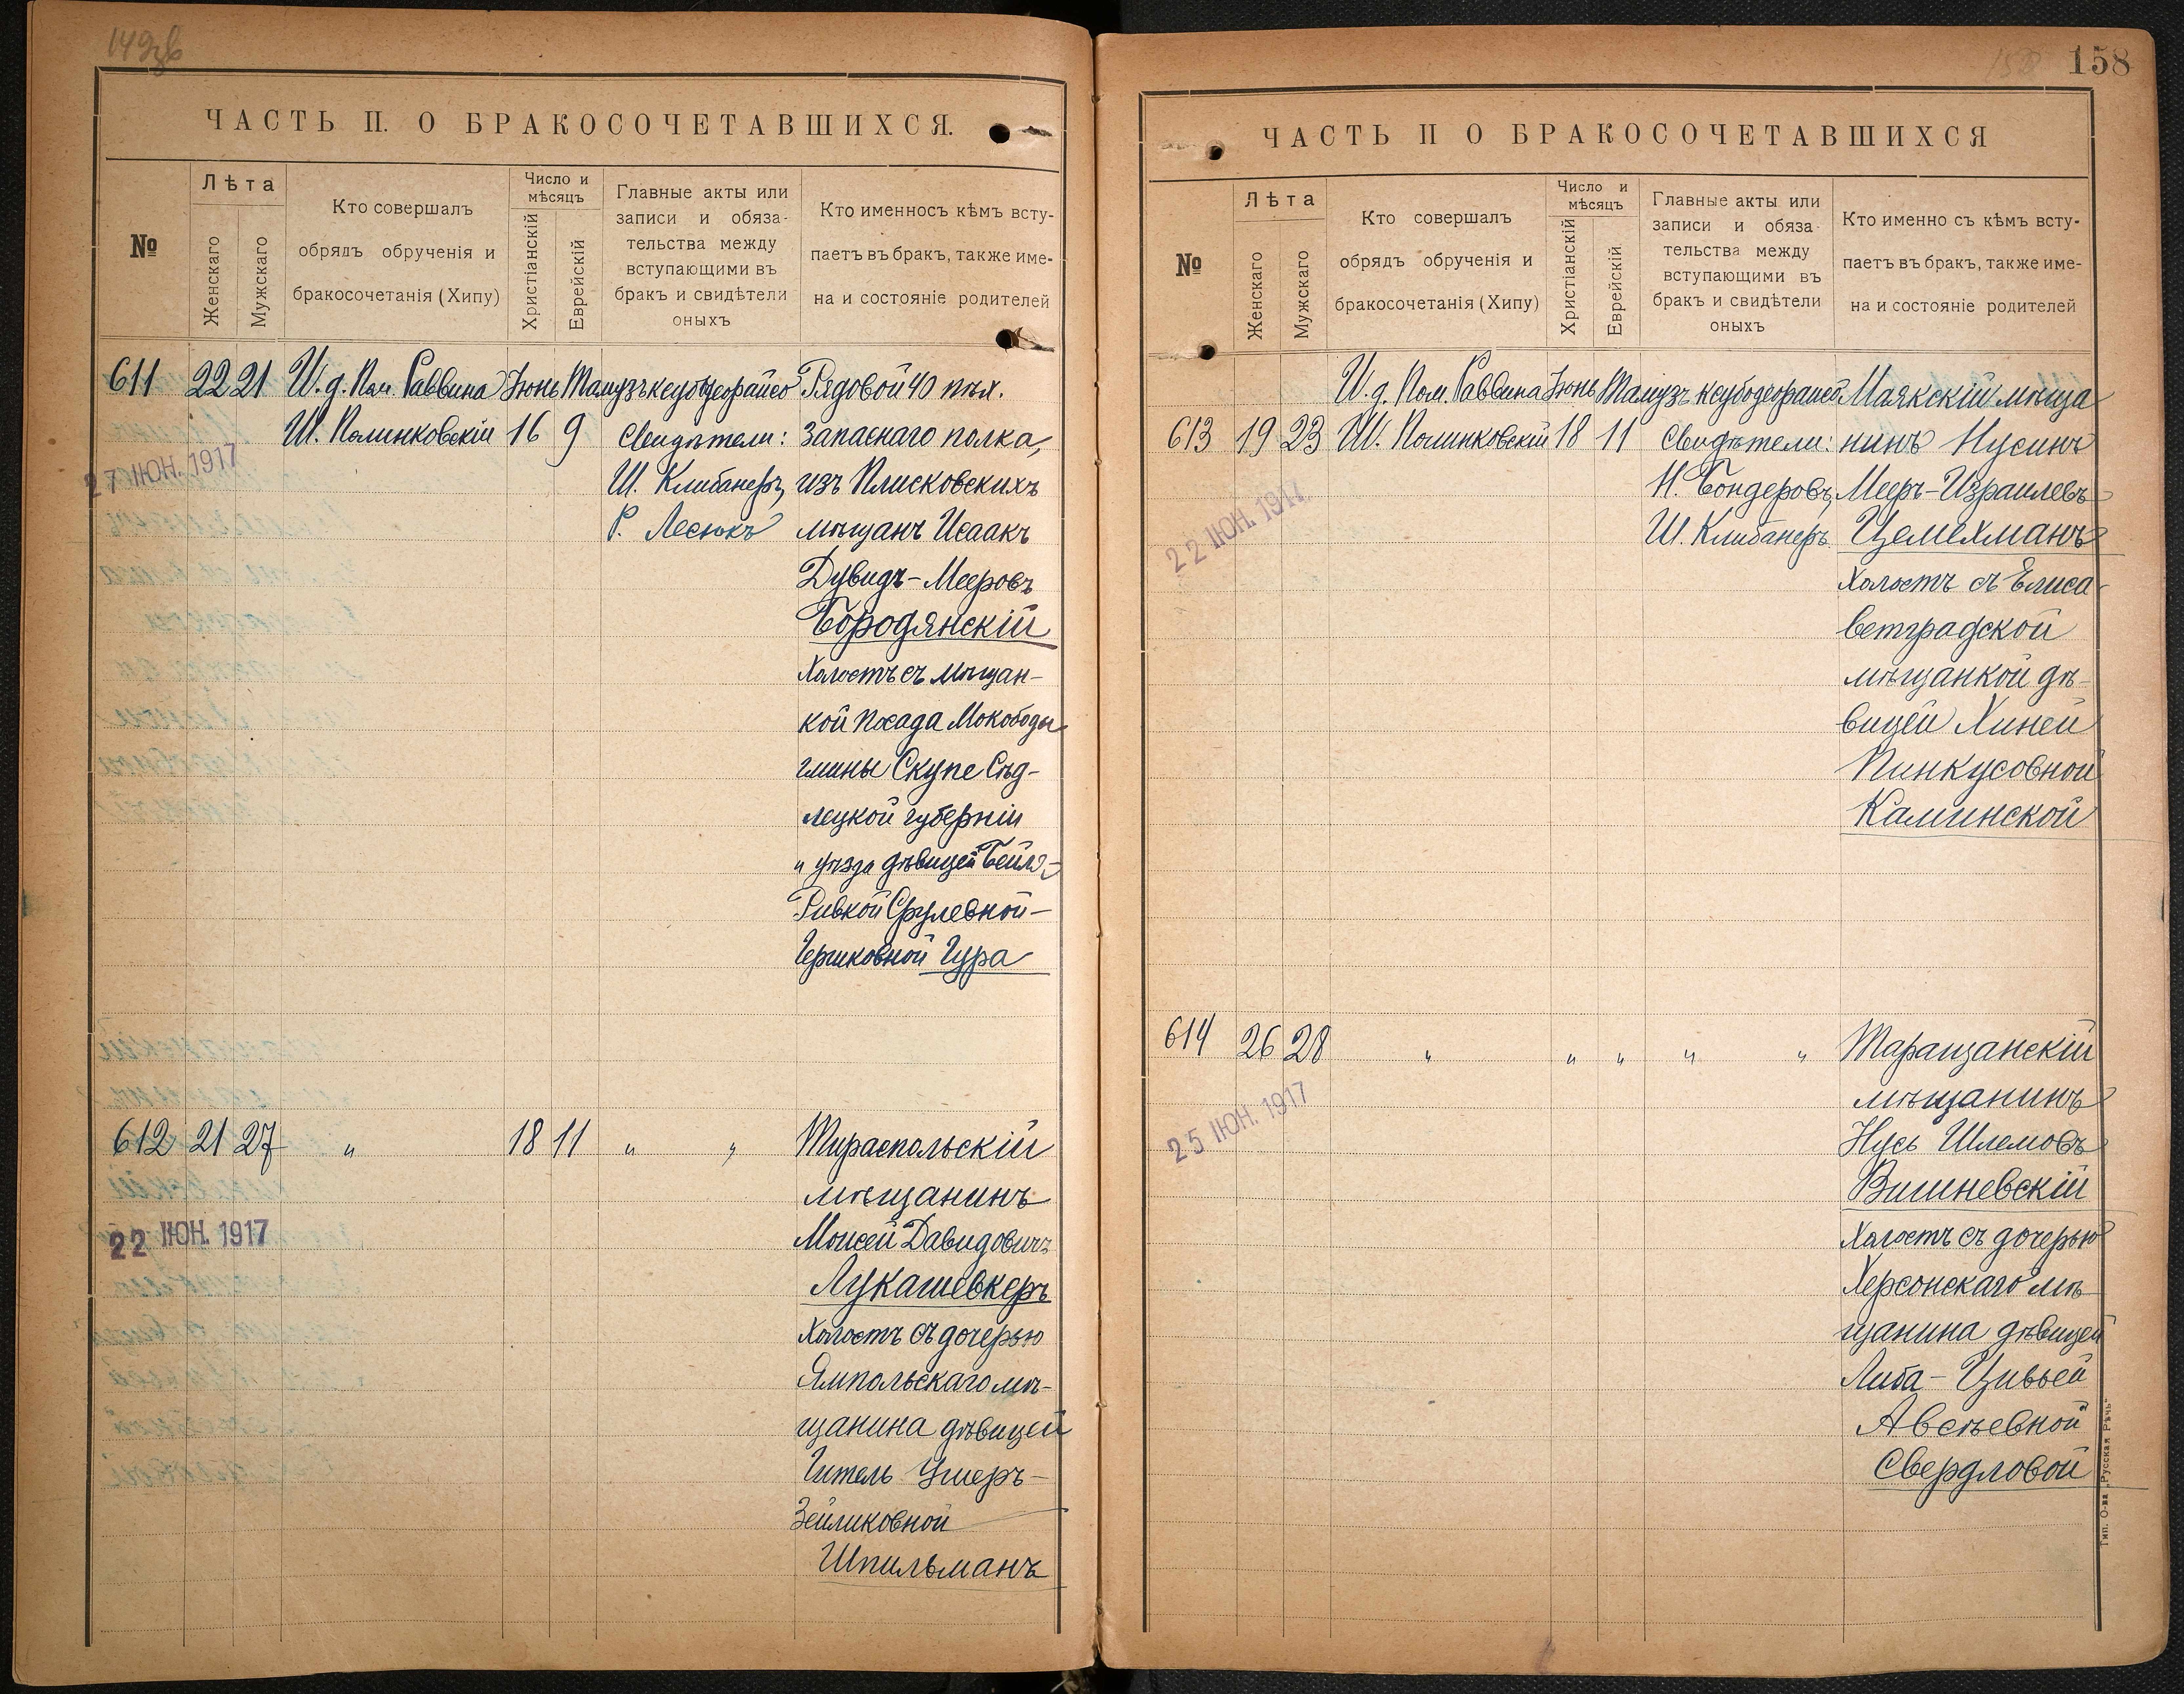 ЧАСТЬ II. О БРАКОСОЧЕТАВШИХСЯ.
№
Лѣта
Женскаго
Мужскаго
Кто совершалъ
обрядъ обрученія и
бракосочетанія (Хипу)
Число и
мѣсяцъ
Христіанскій
Еврейскій
Главные акты или
записи и обяза-
тельства между
вступающими въ
бракъ и свидѣтели
оныхъ
Кто именносъ кѣмъ всту-
паетъ въ бракъ, также име-
на и состояніе родителей
611 22 21 И. д. Пом. Раввина Іюнь Тамузъ ксубодеорайсо Рядовой 40 пѣх.
Ш. Полинковскій 16 9 Свидѣтели: запаснаго полка,
27 ІЮН. 1917
Ш. Клибанеръ, изъ Плисковскихъ
Р. Лесюкъ мѣщанъ Исаакъ
Дувидъ-Мееровъ
Бородянскій
Холостъ съ мѣщан-
кой посада Мокободы
гмины Скупе Сѣд-
лецкой губерніи
и уѣзда дѣвицей Бейлэ-
Ривкой Срулевной-
Гершковной Гура
612 21 27 " 18 11 " " Тираспольскій
мѣщанинъ
22 ІЮН. 1917
Моисей Давидовичъ
Лукашевкеръ
Холостъ съ дочерью
Ямпольскаго мѣ-
щанина дѣвицей
Гитель Ушеръ-
Зейликовной
Шпильманъ
158
ЧАСТЬ II О БРАКОСОЧЕТАВШИХСЯ
№
Лѣта
Женскаго
Мужскаго
Кто совершалъ
обрядъ обрученія и
бракосочетанія (Хипу)
Число и
мѣсяцъ
Христіанскій
Еврейскій
Главные акты или
записи и обяза-
тельства между
вступающими въ
бракъ и свидѣтели
оныхъ
Кто именно съ кѣмъ всту-
паетъ въ бракъ, также име-
на и состояніе родителей
И. д. Пом. Раввина Іюнь Тамузъ ксубодеорайсо Маякскій мѣща
613 19 23 Ш. Полинковскій 18 11 Свидѣтели: нинъ Нусинъ
Н. Бондеровъ, Мееръ-Израилевъ
22 ІЮН. 1917
Ш. Клибанеръ Цемехманъ
Холостъ съ Елиса-
ветградской
мѣщанкой дѣ-
вицей Хиней
Пинкусовной
Каминской
614 26 28 " " " " " Таращанскій
мѣщанинъ
25 ІЮН. 1917
Нусь Шлемовъ
Вишневскій
Холостъ съ дочерью
Херсонскаго мѣ-
щанина дѣвицей
Либа-Цивьей
Авсѣевной
Свердловой
Тип. О-ва „Русская Рѣчь“